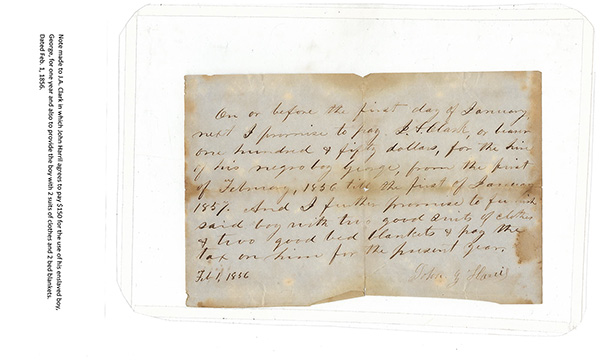 Note made to J.A. Clark in which John Harril agrees to pay $150 for the use of his enslaved boy,
George, for one year and also to provide the boy with 2 suits of clothes and 2 bed blankets.
Dated Feb. 1, 1856.
On or before the first day of January,
next I promise to pay Clark, or bearer
one hundred & fifty dollars, for the hire
of his negro boy George, from the first
of February, 1856 till the first of January
1857. And I further promise to furnish
said boy with two good suits of clothes
& two good bed blankets & pay the
tax on him for the present year.
Feb 1, 1856
John